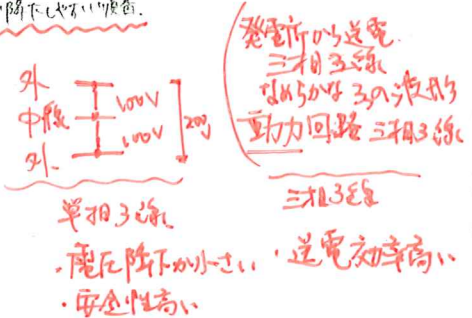 降下しやすい場合.
外
中線
外
100V
100V
200V
単相3線
・電圧降下が小さい
・安全性高い
発電所から送電
三相3線
なめらかな3つの波形
動力回路 三相3線
三相3線
・送電効率高い